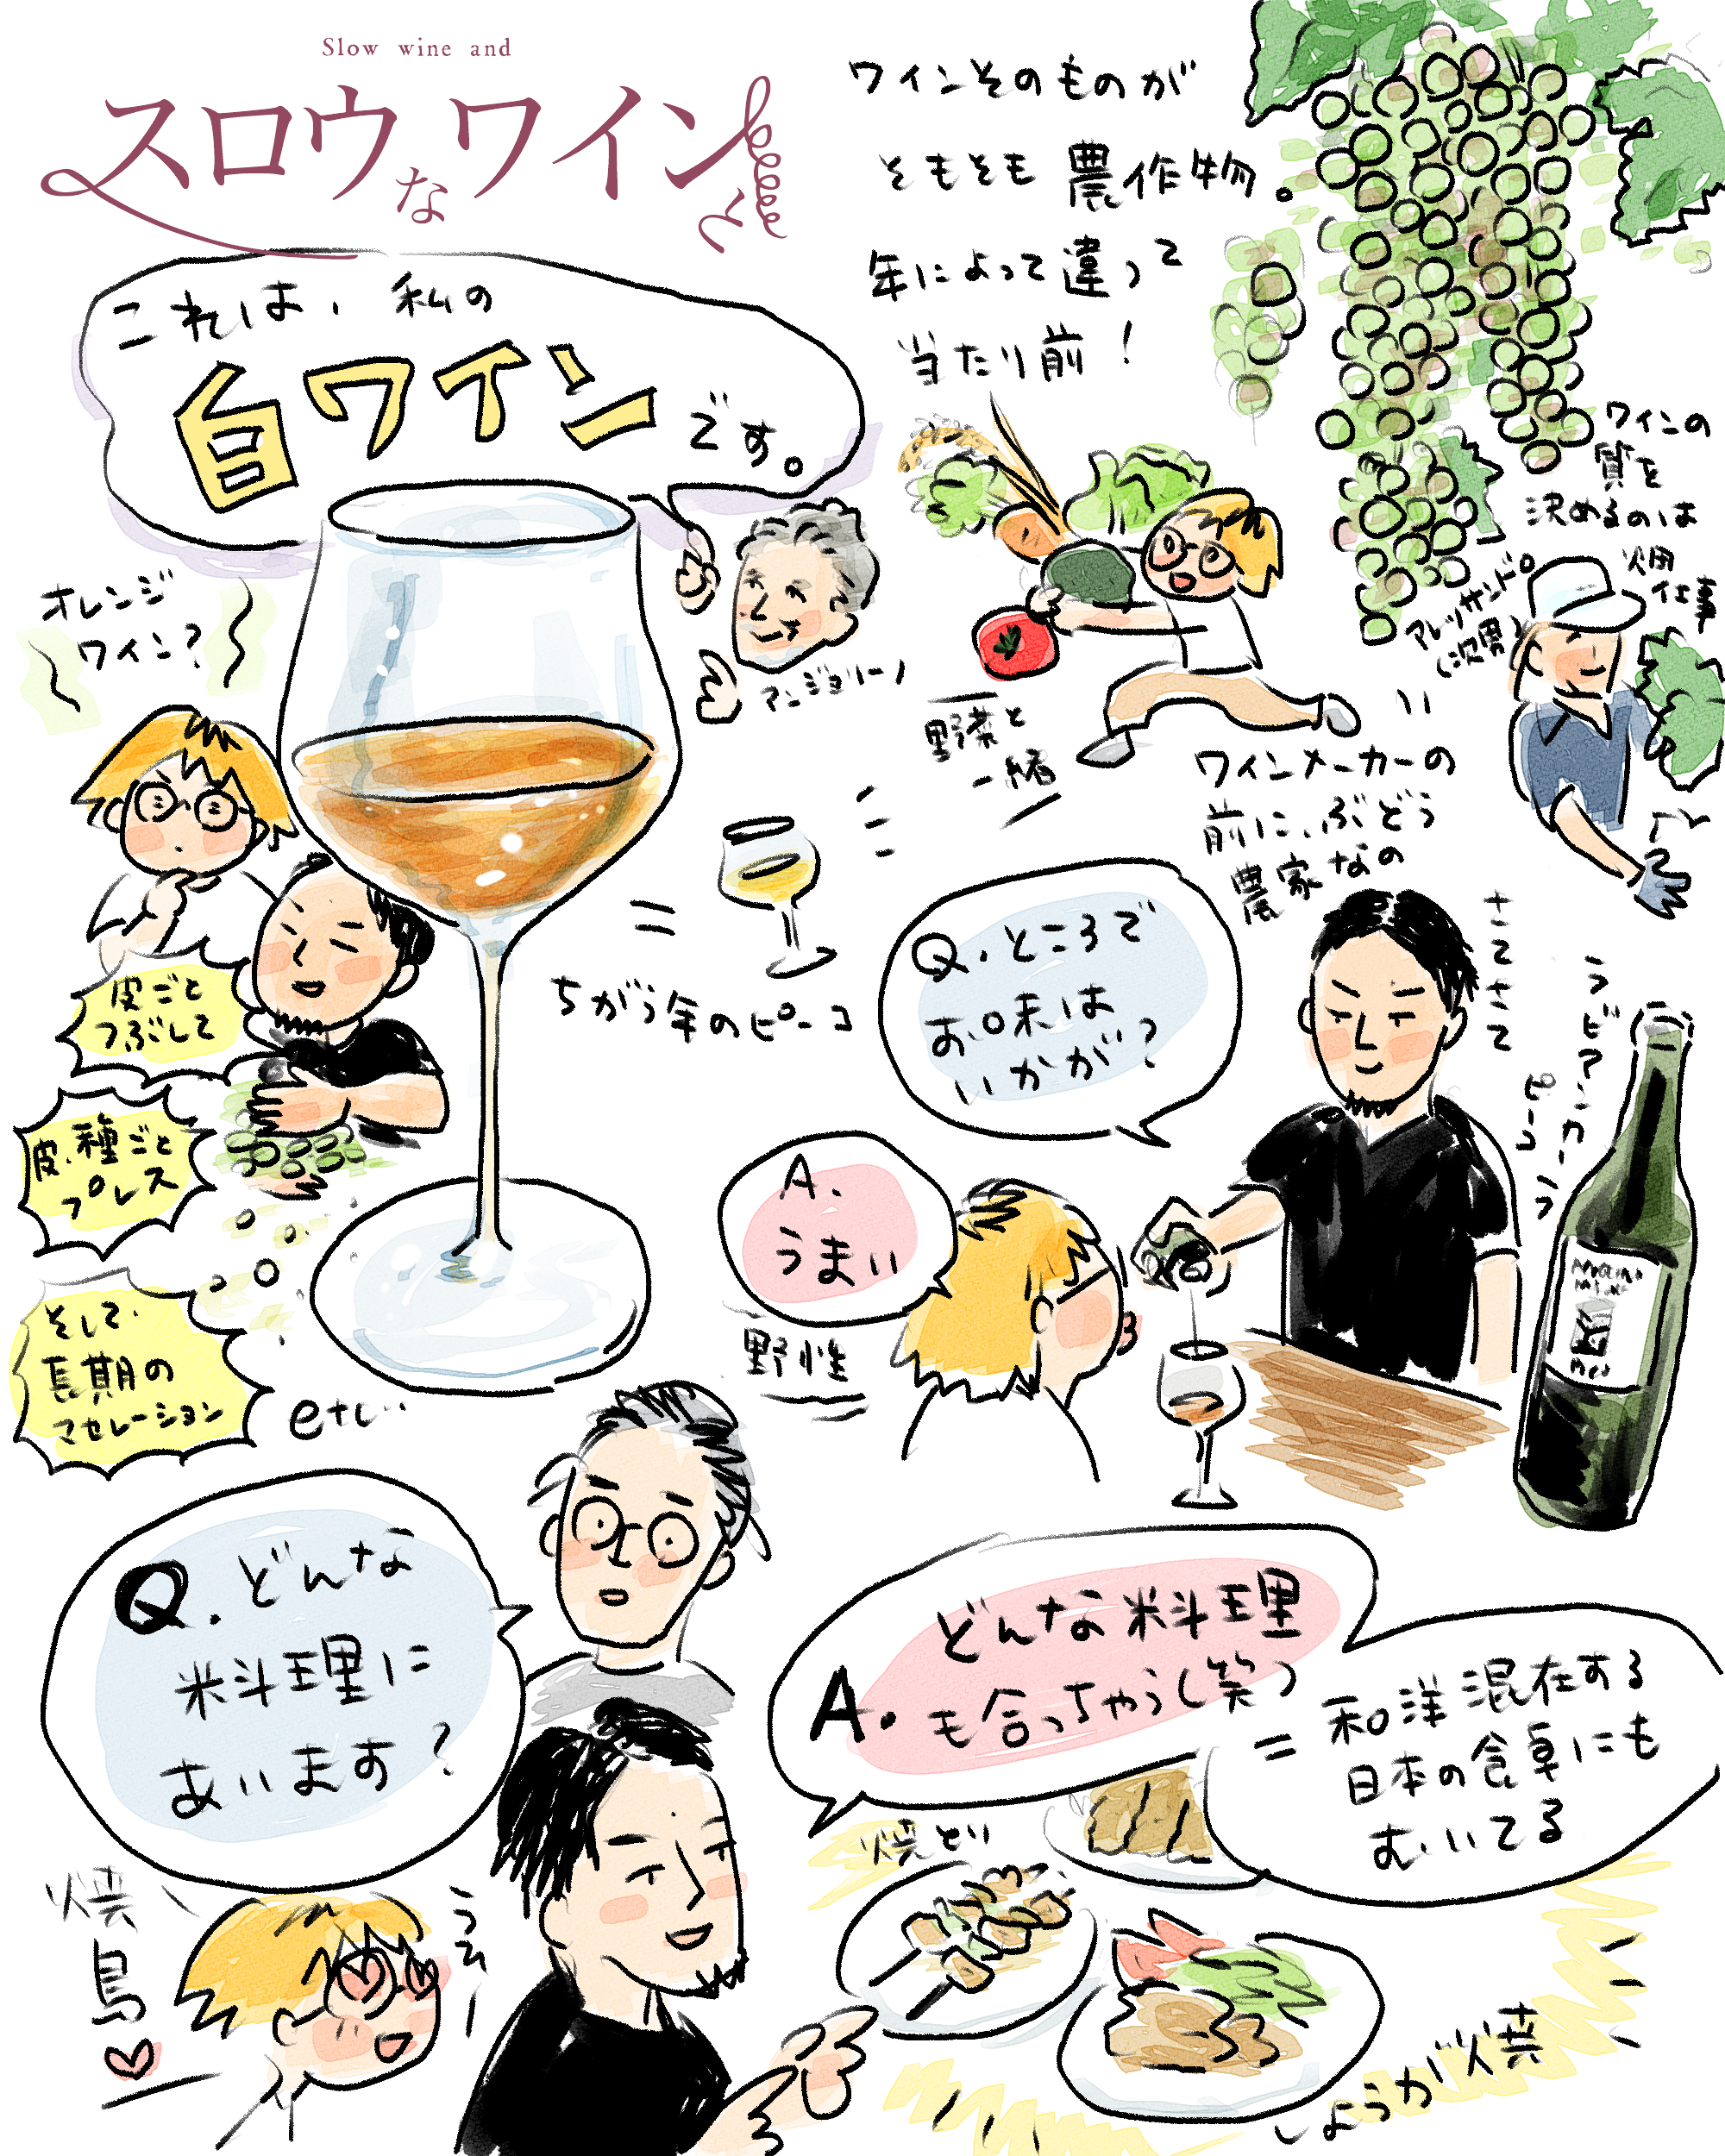 Slow wine and
スロウなワインと
これは、私の
白ワインです。
アンジョリーノ
オレンジ
ワイン?
皮ごと
つぶして
皮、種ごと
プレス
そして、
長期の
マセレーション
etc…
ちがう年のピーコ
ワインそのものが
そもそも農作物。
年によって違って
当たり前!
野菜と
一緒
ワインの
質を
決めるのは
畑
仕事
アレッサンドロ
(次男)
ワインメーカーの
前に、ぶどう
農家なの
さてさて
Q.ところで
お味は
いかが?
A.
うまい
野性
ラビアンカー
ピーコ
Q.どんな
料理に
あいます?
A.どんな料理
も合っちゃう(笑)
=和洋混在する
日本の食卓にも
むいてる
焼鳥
うそー
焼とり
しょうが焼